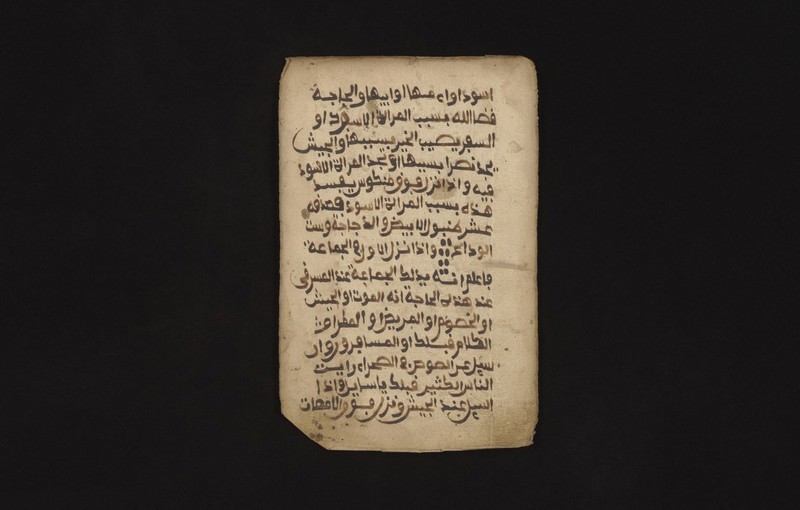 اسود او امها او ابيها والحاجة
فضا الله بسبب المراة الاسود او
السفر يصيب الخير بسببها والجيش
يجد نصرا بسببها او يجد المراة الاسود
فيه واذا نزل فوق منكوس يفسد
هذه بسبب المراة الاسود فصدقه
عشر الابيض والدجاجة وست
الوداع واذا نزل الاول في الجماعة
فاعلم انه يدل الجماعة عند
عند هذه الحاجة انه الموت او الجيش
او الخصوم او المريض او المطر او
الكلام فيك او المسافر
سيل عن الصوص في الصحراء رايت
الناس الكثير فيك يا سايل واذا
السيل عند الجيش ونزل فوق الامهات